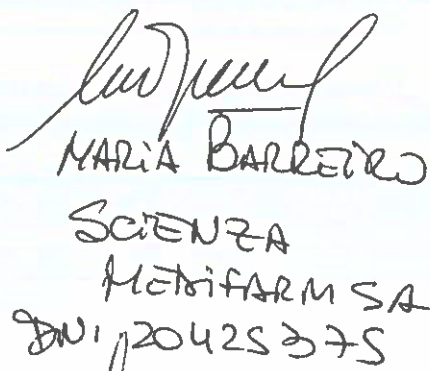 MARiA BARREiRO
SCiENZA
MEDiFARM SA
DNI 20425375